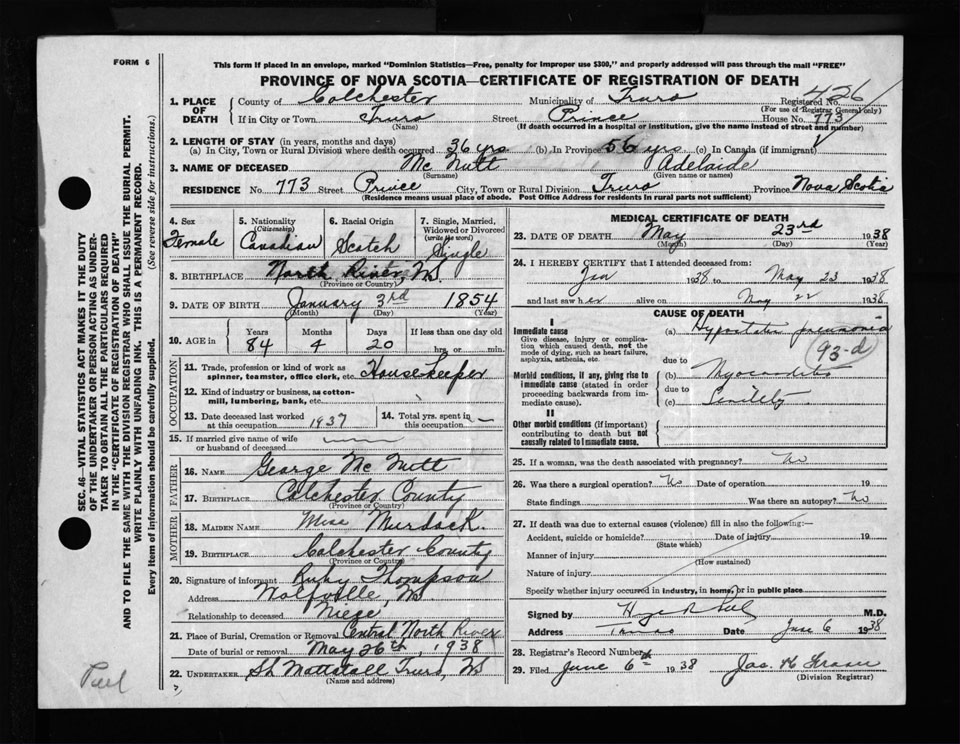 FORM 6
This form if placed in an envelope, marked "Dominion Statistics—Free, penalty for improper use $300," and properly addressed will pass through the mail "FREE"
PROVINCE OF NOVA SCOTIA—CERTIFICATE OF REGISTRATION OF DEATH
426
1. PLACE OF DEATH
County of Colchester Municipality of Truro Registered No.
(For use of Registrar General only)
If in City or Town Truro Street Prince House No. 773
(Name) (If death occurred in a hospital or institution, give the name instead of street and number)
2. LENGTH OF STAY (in years, months and days)
(a) In City, Town or Rural Division where death occurred 36 yrs (b) In Province 56 yrs (c) In Canada (if immigrant)
3. NAME OF DECEASED Mc Nutt Adelaide
(Surname) (Given name or names)
RESIDENCE No. 773 Street Prince City, Town or Rural Division Truro Province Nova Scotia
(Residence means usual place of abode. Post Office Address for residents in rural parts not sufficient)
4. Sex
Female
5. Nationality
(Citizenship)
Canadian
6. Racial Origin
Scotch
7. Single, Married, Widowed or Divorced
(write the word)
Single
8. BIRTHPLACE North River, NS.
(Province or Country)
9. DATE OF BIRTH January 3rd 1854
(Month) (Day) (Year)
10. AGE in
Years Months Days If less than one day old
84 4 20 hrs. or min.
OCCUPATION
11. Trade, profession or kind of work as spinner, teamster, office clerk, etc. Housekeeper
12. Kind of industry or business, as cotton-mill, lumbering, bank, etc.
13. Date deceased last worked at this occupation 1937
14. Total yrs. spent in this occupation —
15. If married give name of wife or husband of deceased
FATHER
16. NAME George Mc Nutt
17. BIRTHPLACE Colchester County
(Province or Country)
MOTHER
18. MAIDEN NAME Miss Murdock.
19. BIRTHPLACE Colchester County
(Province or Country)
20. Signature of informant Ruby Thompson
Address Wolfville, NS
Relationship to deceased Niece
21. Place of Burial, Cremation or Removal Central North River
Date of burial or removal May 26th, 1938
22. UNDERTAKER Mattatall Truro, NS
(Name and address)
MEDICAL CERTIFICATE OF DEATH
23. DATE OF DEATH May 23rd 1938
(Month) (Day) (Year)
24. I HEREBY CERTIFY that I attended deceased from:
Jan 1938 to May 23 1938
and last saw her alive on May 22 1938
CAUSE OF DEATH
I
Immediate cause
Give disease, injury or complication which caused death, not the mode of dying, such as heart failure, asphyxia, asthenia, etc.
(a) Hypostatic pneumonia
93-d
due to
Morbid conditions, if any, giving rise to immediate cause (stated in order proceeding backwards from immediate cause).
(b) Myocarditis
due to
(c) Senility
II
Other morbid conditions (if important) contributing to death but not causally related to immediate cause.
25. If a woman, was the death associated with pregnancy? No
26. Was there a surgical operation? No Date of operation 19
State findings Was there an autopsy? No
27. If death was due to external causes (violence) fill in also the following:—
Accident, suicide or homicide? Date of injury 19
(State which)
Manner of injury
(How sustained)
Nature of injury
Specify whether injury occurred in industry, in home, or in public place
Signed by M.D.
Address Truro Date June 6 1938
28. Registrar's Record Number
29. Filed June 6th 1938 Jas. H Fraser
(Division Registrar)
SEC. 46—VITAL STATISTICS ACT MAKES IT THE DUTY
OF THE UNDERTAKER OR PERSON ACTING AS UNDER-
TAKER TO OBTAIN ALL THE PARTICULARS REQUIRED
IN THE "CERTIFICATE OF REGISTRATION OF DEATH"
AND TO FILE THE SAME WITH THE DIVISION REGISTRAR WHO SHALL ISSUE THE BURIAL PERMIT.
WRITE PLAINLY WITH UNFADING INK. THIS IS A PERMANENT RECORD.
Every item of information should be carefully supplied. (See reverse side for instructions.)